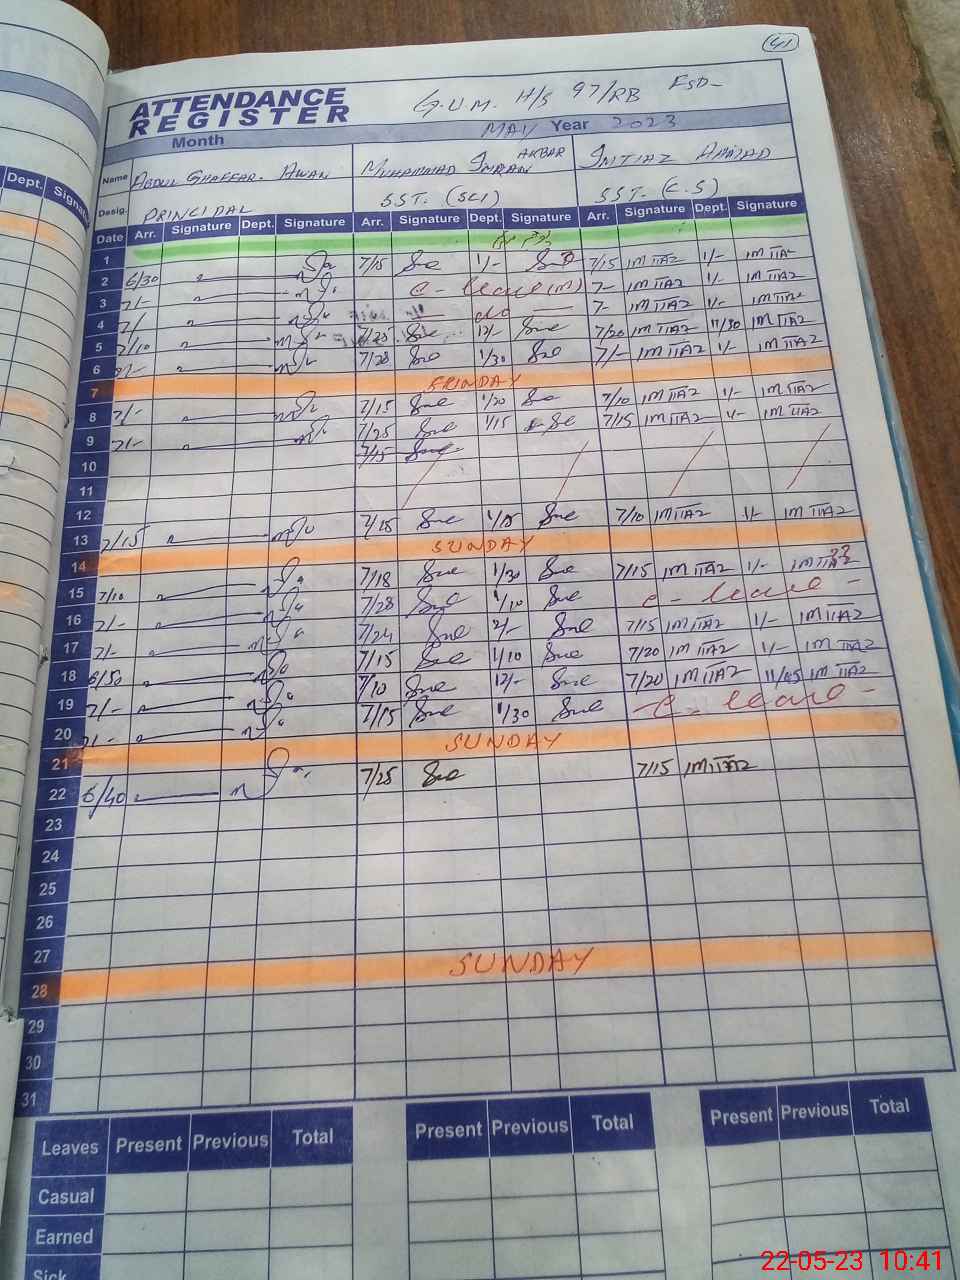 41
ATTENDANCE REGISTER
G.U.M. H/S 97/RB FSD-
Month MAY Year 2023
Name ABDUL GHAFFAR AWAN MUHAMMAD IMRAN AKBAR IMTIAZ AHMAD
Desig. PRINCIPAL SST. (SCI) SST. (C.S)
Dept. Signature
Date Arr. Signature Dept. Signature Arr. Signature Dept. Signature Arr. Signature Dept. Signature
1
2 6/30 7/15 1/- 7/15 IMTIAZ 1/- IMTIAZ
3 7/- C- leave 7- IMTIAZ 1/- IMTIAZ
4 7/ do 7- IMTIAZ 1/- IMTIAZ
5 7/10 7/25 12/- 7/20 IMTIAZ 11/30 IMTIAZ
6 7/- 7/28 1/30 7/- IMTIAZ 1/- IMTIAZ
7
8 7/- 7/15 1/20 7/10 IMTIAZ 1/- IMTIAZ
9 7/- 7/25 1/15 7/15 IMTIAZ 1/- IMTIAZ
10 7/15
11
12
13 7/15 7/18 1/15 7/10 IMTIAZ 1/- IMTIAZ
14 SUNDAY
15 7/10 7/18 1/30 7/15 IMTIAZ 1/- IMTIAZ
16 7/- 7/28 1/10 C- leave -
17 7/- 7/24 2/- 7/15 IMTIAZ 1/- IMTIAZ
18 6/50 7/15 1/10 7/20 IMTIAZ 1/- IMTIAZ
19 7/- 7/10 12/- 7/20 IMTIAZ 11/45 IMTIAZ
20 7/- 7/15 1/30 -C- leave -
21 SUNDAY
22 6/40 7/25 7/15 IMTIAZ
23
24
25
26
27
28 SUNDAY
29
30
31
Leaves Present Previous Total Present Previous Total Present Previous Total
Casual
Earned
Sick
22-05-23 10:41